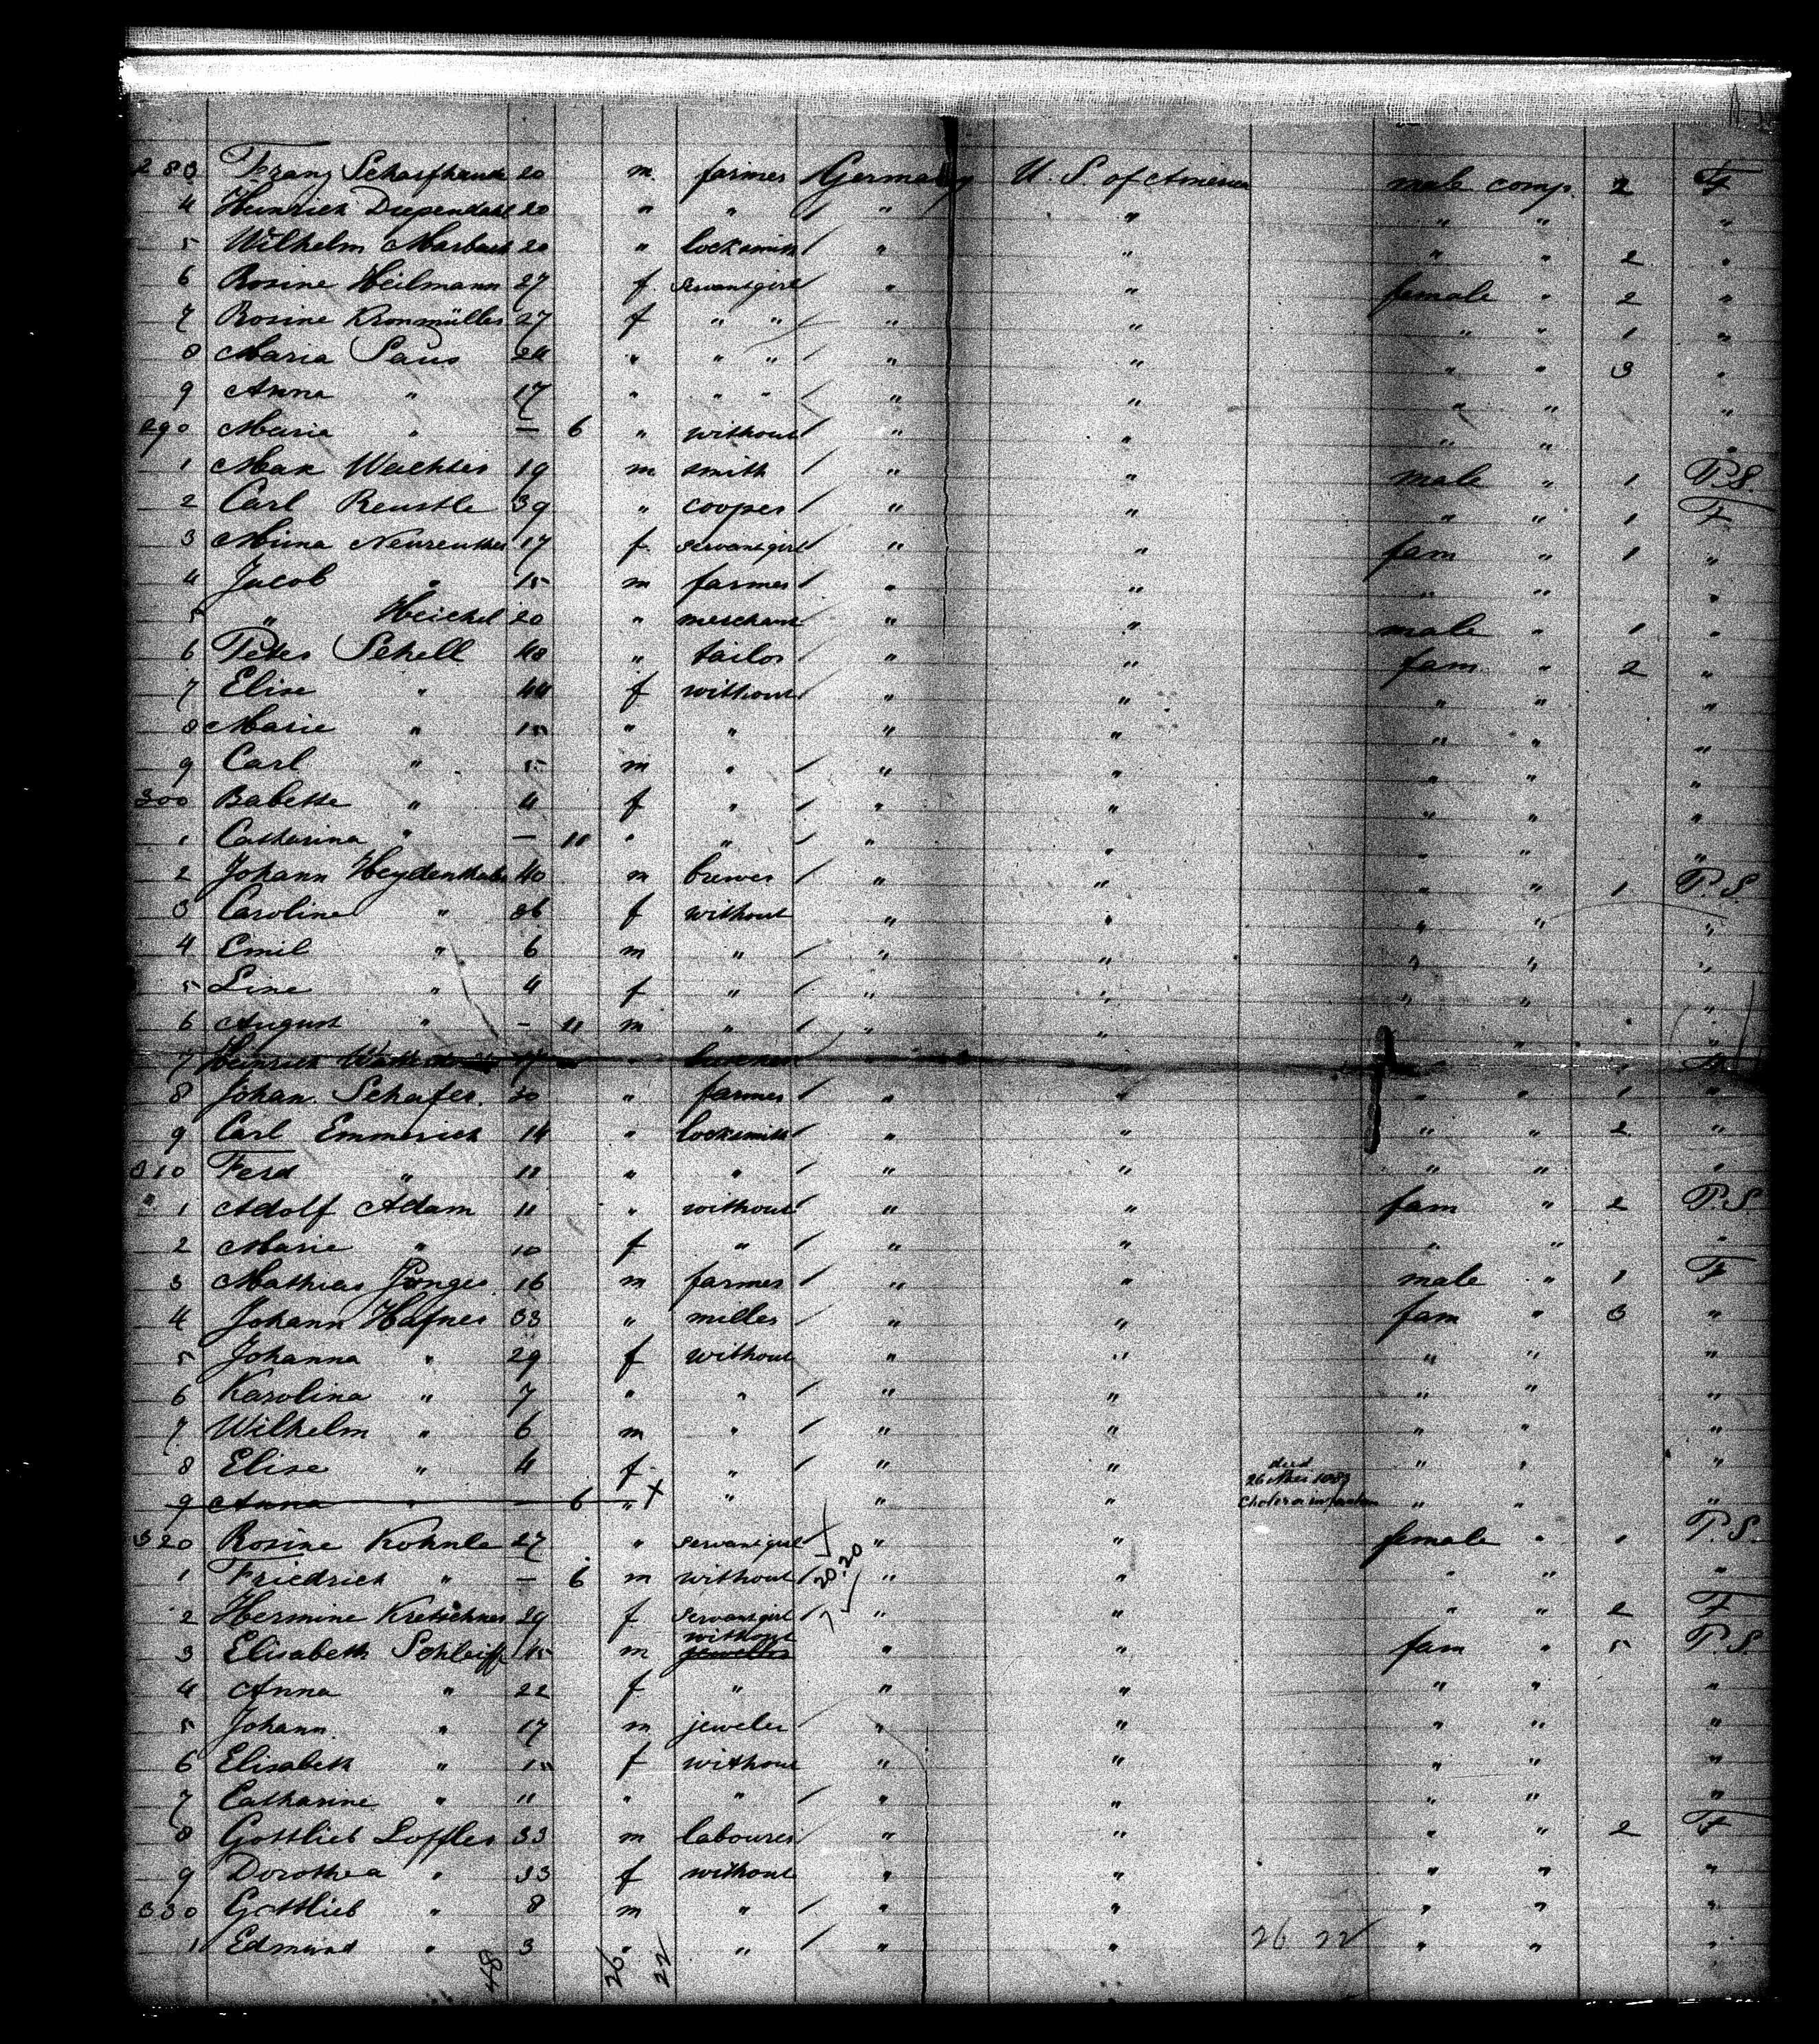 283 Franz Scharfhaus 20 m. farmer Germany U. S. of America male comp. 2 F
4 Heinrich Diependahl 20 " " " " " "  "
5 Wilhelm Marbach 20 " locksmith " " " " 2 "
6 Rosine Heilmann 27 f. servantgirl " " female " 2 "
7 Rosine Kronmüller 27 f " " " " " " 1 "
8 Maria Saus 24 " " " " " " " 3 "
9 Anna " 17 " " " " " " " "
290 Marie " — 6 " without " " " " "
1 Max Wachter 19 m smith " " male " 1 P.S.
2 Carl Reustle 39 " cooper " " " " 1 F
3 Minna Neureuther 17 f. servantgirl " " fam " 1 "
4 Jacob " 15 m farmer " " " " "
5 " Heichel 20 " merchant " " male " 1 "
6 Peter Schell 48 " tailor " " fam " 2 "
7 Elise " 44 f without " " " " "
8 Marie " 15 " " " " " " "
9 Carl " 5 m " " " " " "
300 Babette " 4 f " " " " " "
1 Catharina " — 11 " " " " " " "
2 Johann Heydenthaler 40 m brewer " " " " 1 P.S.
3 Caroline " 36 f without " " " " "
4 Emil " 6 m " " " " " "
5 Line " 4 f " " " " " "
6 August " — 11 m " " " " " "
7 Heinrich
8 Johan. Schafer. 30 " farmer " " " " 1 "
9 Carl Emmerich 14 " locksmith " " " " 2 "
310 Ferd " 11 " " " " " " "
1 Adolf Adam 11 " without " " fam " 2 P.S.
2 Marie " 10 f " " " " " "
3 Mathias Junger 16 m farmer " " male " 1 F
4 Johann Hafner 33 " miller " " fam " 3 "
5 Johanna " 29 f without " " " " "
6 Karolina " 7 " " " " " " "
7 Wilhelm " 6 m " " " " " "
8 Elise " 4 f " " " " " "
died
26 Nov 1889
9 Anna " — 6 " X " " " Cholera infantum " " "
320 Rosine Kohnle 27 " servantgirl " " female " 1 P.S.
1 Friedrich " — 6 m without 20.20 " " " " "
2 Hermine Kretschmer 29 f. servantgirl " " " " 2 F
without
3 Elisabeth Schleiff 45 m jeweller " " fam " 5 P.S.
4 Anna " 22 f " " " " " "
5 Johann " 17 m jeweler " " " " "
6 Elisabeth " 15 f without " " " " "
7 Catharine " 11 " " " " " " "
8 Gottlieb Loffler 33 m labourer " " " " 2 F
9 Dorothea " 33 f without " " " " "
330 Gottlieb " 8 m " " " " " "
1 Edmund " 3 " " " " 26 22 " " "
48 26 22